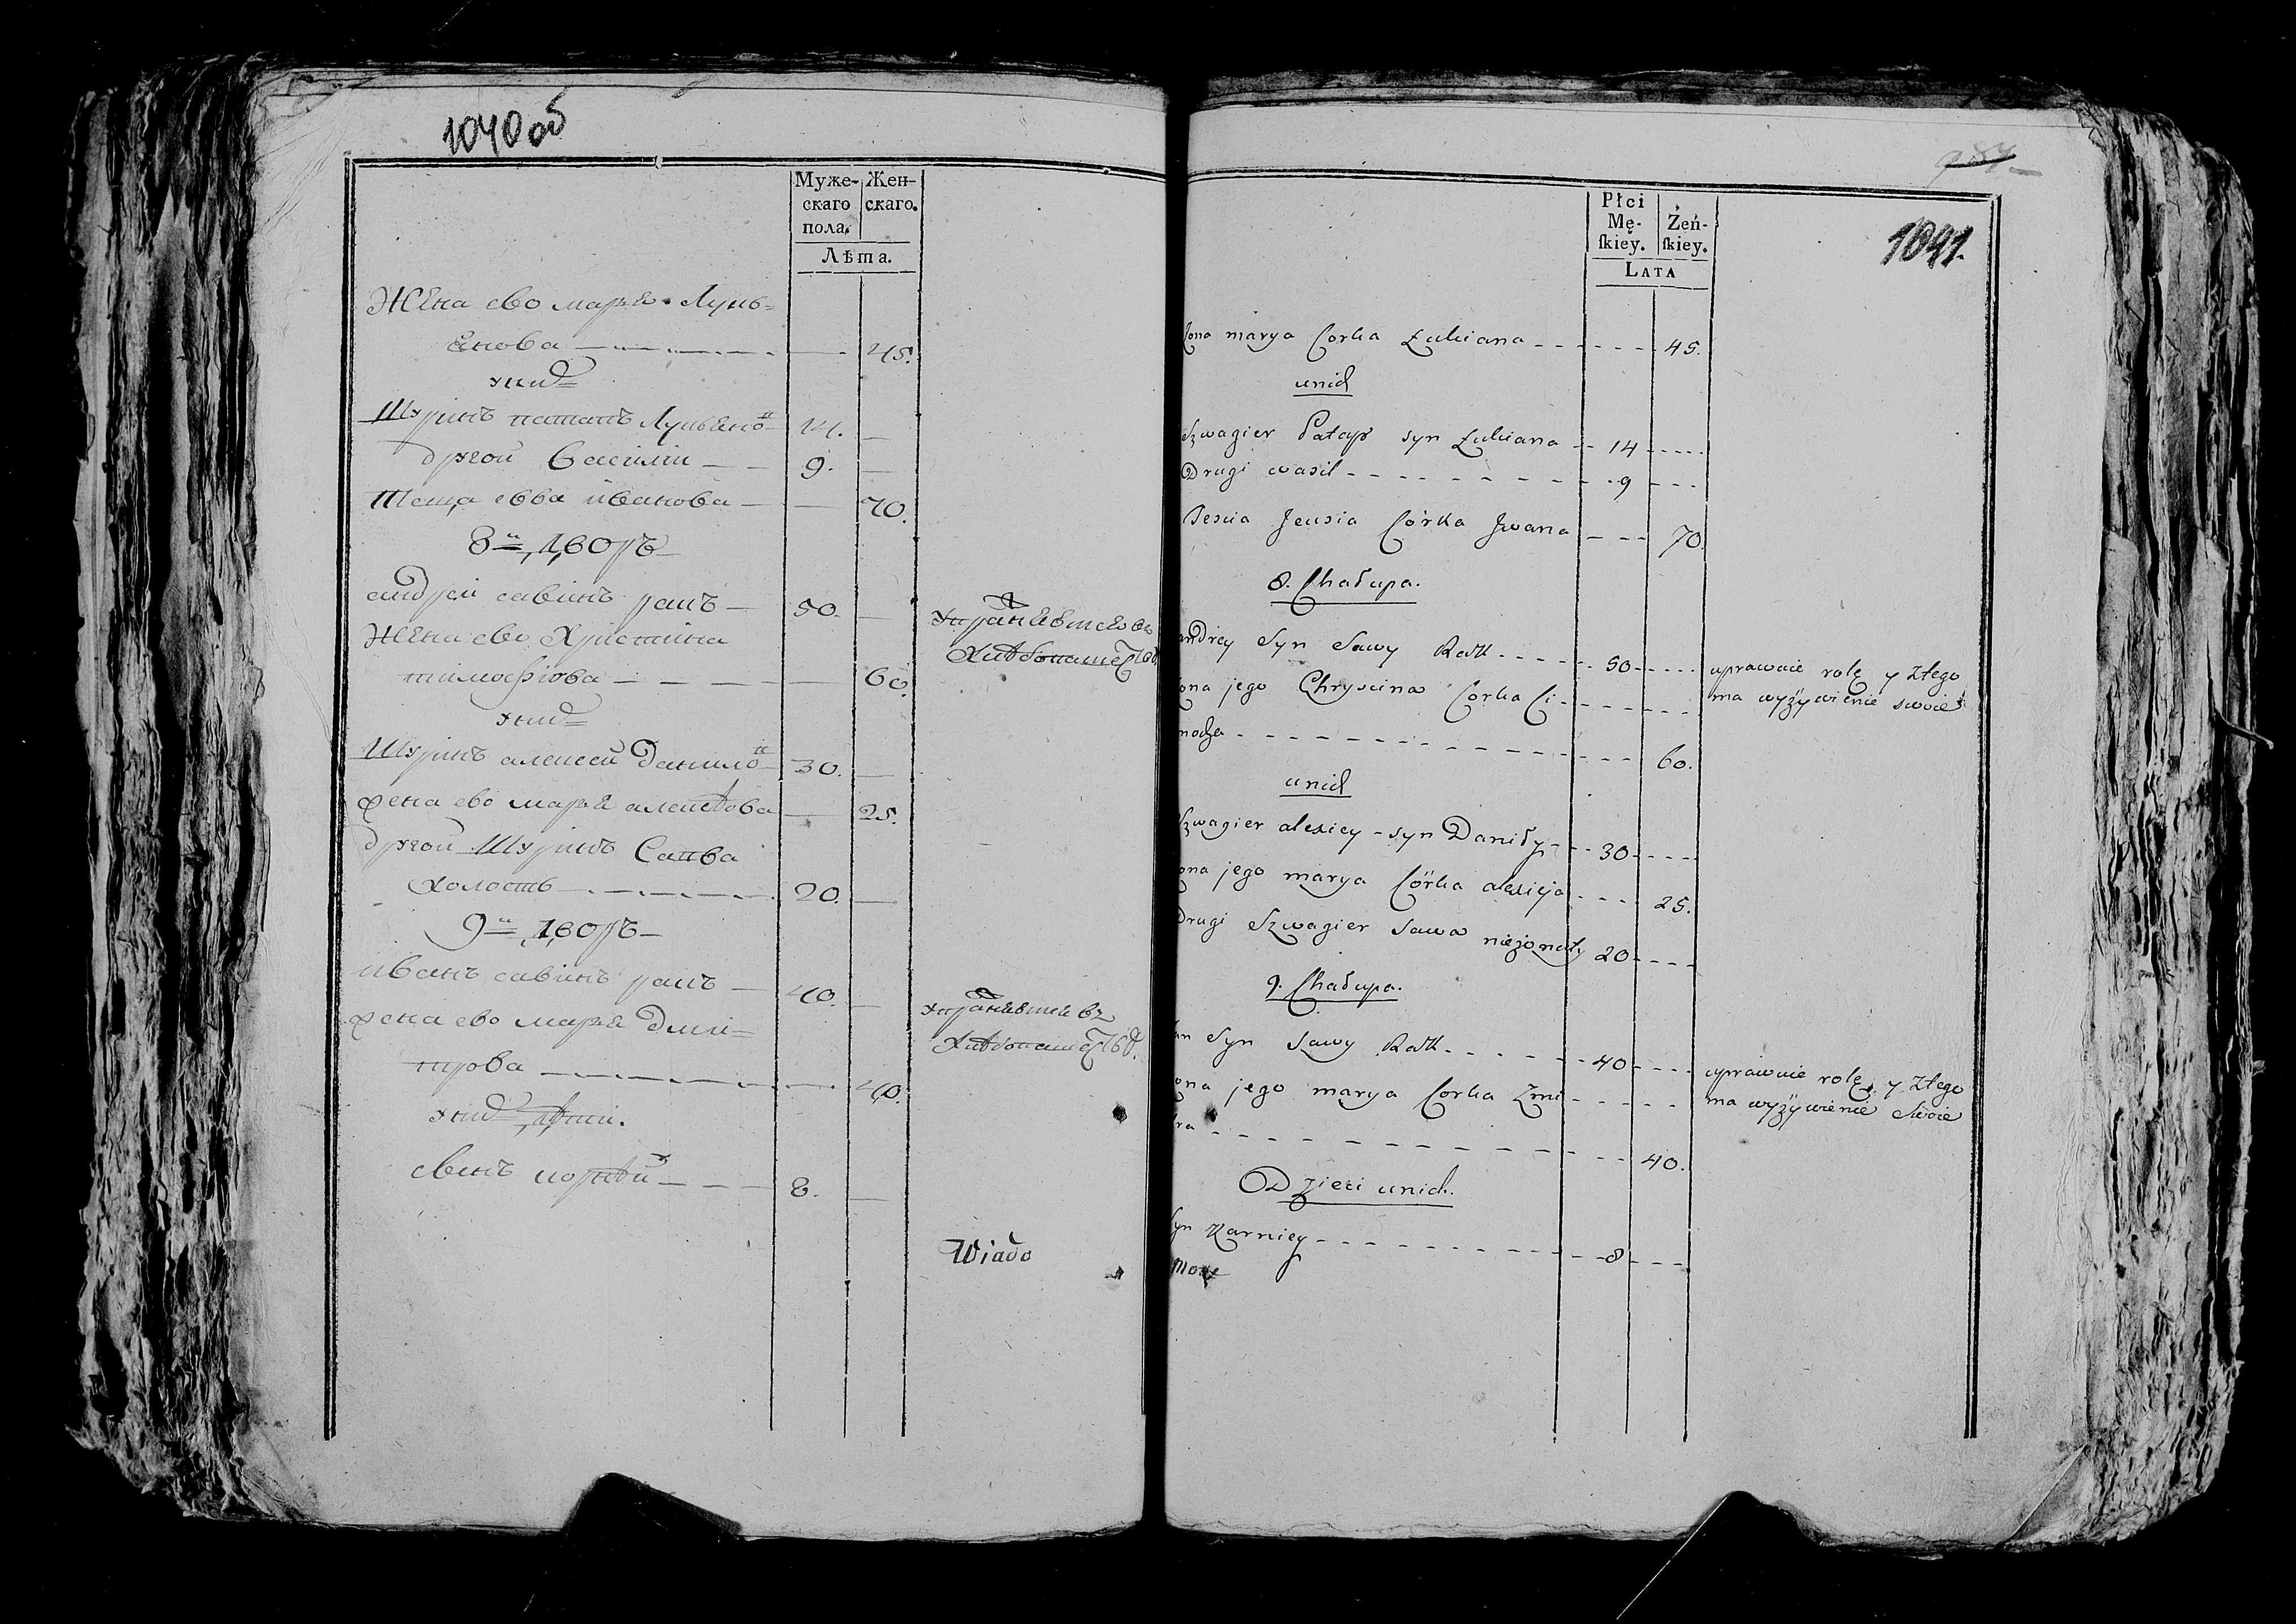 1040об
Муже- Жен-
скаго скаго.
пола.
Лѣта.
Жена ево марья Лукь-
янова 45.
у нид
Шуринъ патапъ Лукьяно 14.
другои Василии 9.
Теща евва иванова 70.
8и дворъ
андреи савинъ ракъ 50.
Жена ево Христина
тимофѣова 60.
у нид
Шуринъ алексеи Данило 30.
жена ево марья алексѣова 25.
другои Шуринъ Савва
холостъ 20.
9и дворъ
иванъ савинъ ракъ 40.
жена ево марья дми-
трова 40.
у нид дѣти.
сынъ корнѣй 8.
Wiado
1041.
Płci
Mę- Żeń-
ſkiey. ſkiey.
LATA
żona marya Corka Łukiana 45.
unich
Szwagier Patap syn Łukiana 14
Drugi wasil 9
Tescia Jeusia Córka Jwana 70.
8. Chałupa.
andrey Syn Sawy Rak 50 uprawuie rolę y ztego
żona jego Chryscina Corka Ci- ma wyżywienie swoie
mocha 60.
unich
Szwagier alexiey syn Daniły 30
żona jego marya Córka alexieja 25.
Drugi Szwagier Sawa nieżonaty 20
9. Chałupa.
Syn Sawy Rak 40 uprawuie rolę y ztego
żona jego marya Corka Zmi ma wyżywienie Swoie
tra 40.
Dzieci unich.
Syn Karniey 8